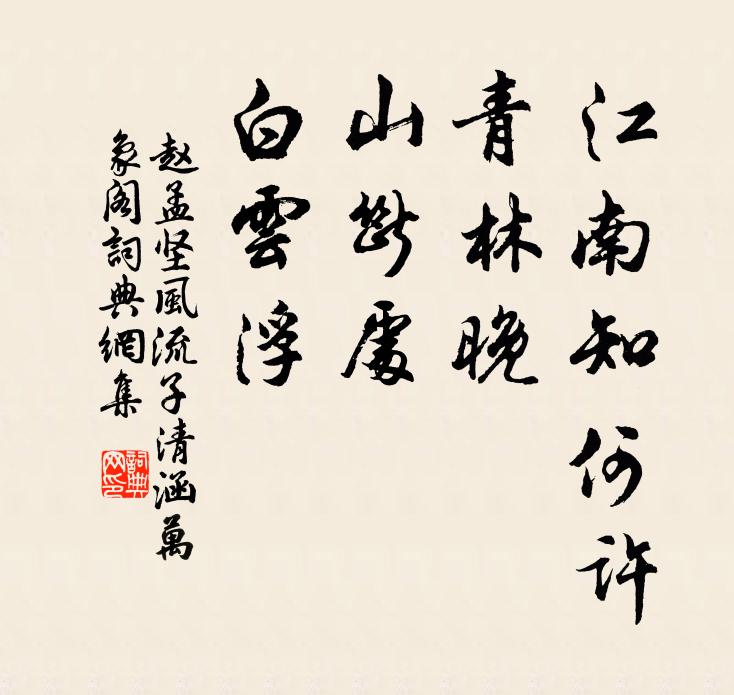 江南知何許
青林晚
山斷處
白雲浮
赵孟坚風流子清涵萬
象阁詞典網集
詞典网印